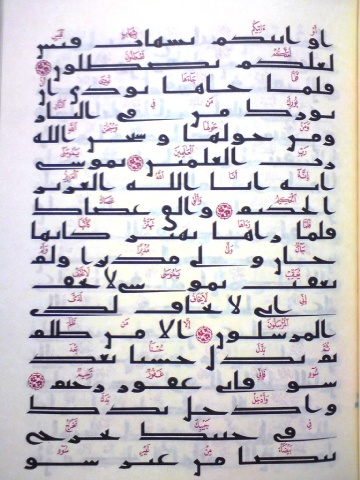 او اتيكم بشهاب قبس
لعلكم تصطلون
فلما جاها نودي ان
بورك من في النار
ومن حولها وسبحن الله
رب العلمين يموسى
انه انا الله العزيز
الحكيم والق عصاك
فلما راها تهتز كانها
جان ولى مدبرا ولم
يعقب يموسى لا تخف
اني لا يخاف لدي
المرسلون الا من ظلم
ثم بدل حسنا بعد
سو فاني غفور رحيم
وادخل يدك
في جيبك تخرج
بيضا من غير سو